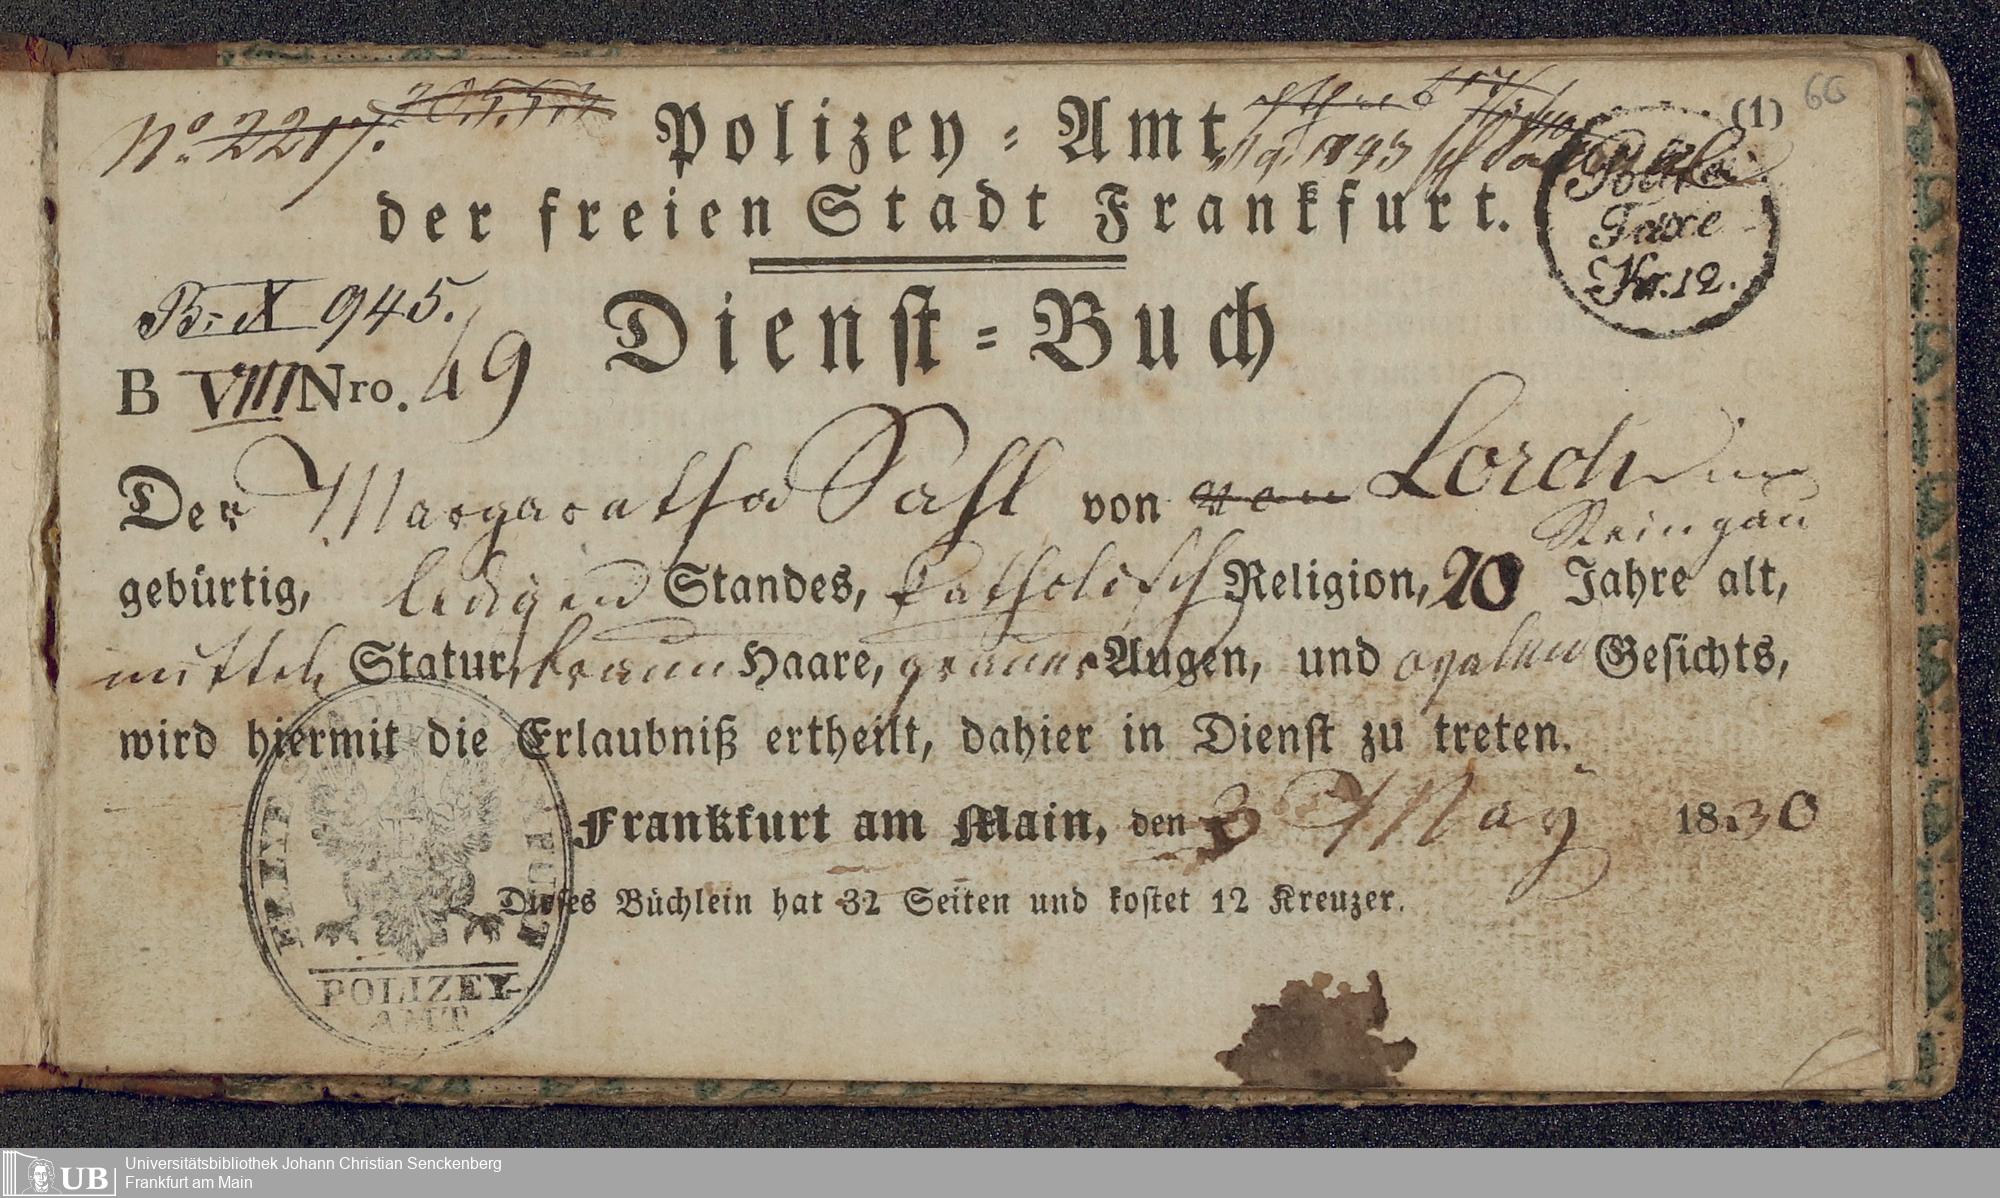 No. 2217. 20557
(1) 66
Polizey-Amt
der freien Stadt Frankfurt.
Polizei
Taxe
Kr. 12.
B. X 945.
Dienst-Buch
B VIII Nro. 49
Der Margaratha Sahl von von Lorch im
Reingau
gebürtig, ledigen Standes, katholisch Religion, 20 Jahre alt,
mittel Statur, braun Haare, grauer Augen, und ovalen Gesichts,
wird hiermit die Erlaubniß ertheilt, dahier in Dienst zu treten.
Frankfurt am Main, den 3 May 1830
Dieses Büchlein hat 32 Seiten und kostet 12 Kreuzer.
POLIZEY-
AMT
UB Universitätsbibliothek Johann Christian Senckenberg
Frankfurt am Main